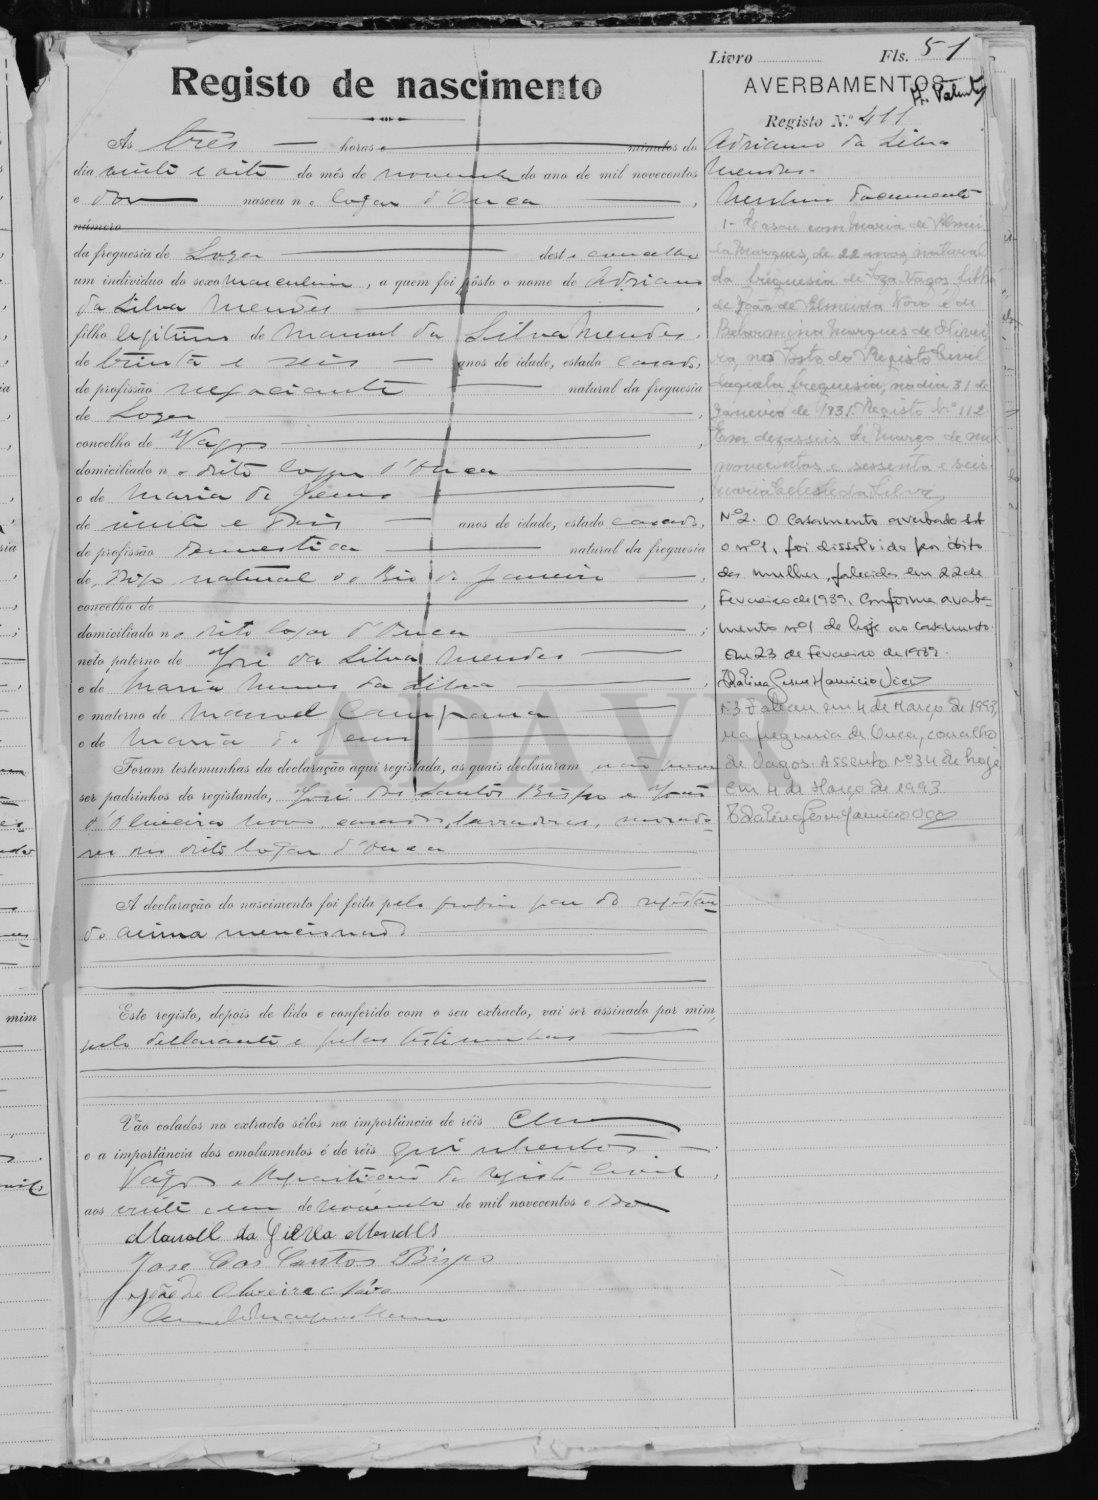 Livro Fls. 51
Registo de nascimento
AVERBAMENTOS
Registo N.º 411
Às três horas e minutos do
dia vinte e oito do mês de novembro do ano de mil novecentos
e nasceu no logar d'Ouca
número
da freguesia de Soza deste concelho
um individuo do sexo masculino, a quem foi pôsto o nome de Adriano
da Silva Mendes
filho legitimo de Manuel da Silva Mendes,
de trinta e seis anos de idade, estado casado,
de profissão negociante natural da freguesia
de Soza
concelho de Vagos
domiciliado no dito logar d'Ouca
e de Maria de Jesus
de vinte e anos de idade, estado casada,
de profissão domestica natural da freguesia
de, digo natural do Rio de Janeiro
concelho de
domiciliado no dito logar d'Ouca
neto paterno de José da Silva Mendes
e de Maria Nunes da Silva
e materno de Manuel Campana
e de Maria de Jesus
Foram testemunhas da declaração aqui registada, as quais declararam não
ser padrinhos do registando, José dos Santos Bispo e João
d'Oliveira Novo, casados, lavradores, morado-
res no dito logar d'Ouca
A declaração do nascimento foi feita pelo proprio pae do registan-
do acima mencionado
Este registo, depois de lido e conferido com o seu extracto, vai ser assinado por mim,
pelo declarante e pelas testemunhas
Vão colados no extracto sêlos na importância de réis
e a importância dos emolumentos é de réis quinhentos
Vagos e Repartição do registo Civil
aos vinte e de novembro de mil novecentos e
Manoel da Silva Mendes
Jose dos Santos Bispo
João de Oliveira Novo
Adriano da Silva
Mendes.
Nenhum documento
1- Casou com Maria de Almei-
da Marques, de 22 anos, natural
da freguesia de Soza Vagos filha
de João de Almeida Novo e de
Belarmina Marques de Olivei-
ra, no Posto do Registo Civil
daquela freguesia, no dia 31 de
Janeiro de 1931. Registo N.º 112
Em dezasseis de Março de mil
novecentos e sessenta e seis.
Maria Celeste da Silva
Nº2. O casamento averbado sob
o nº1, foi dissolvido por óbito
da mulher, falecida em 22 de
Fevereiro de 1989. Conforme averba-
mento nº1 de hoje ao casamento.
Em 23 de Fevereiro de 1989.
Nº3 Faleceu em 4 de Março de 1993,
na freguesia de Ouca, concelho
de Vagos. Assento nº 34 de hoje
Em 4 de Março de 1993.
ADAVR
mim